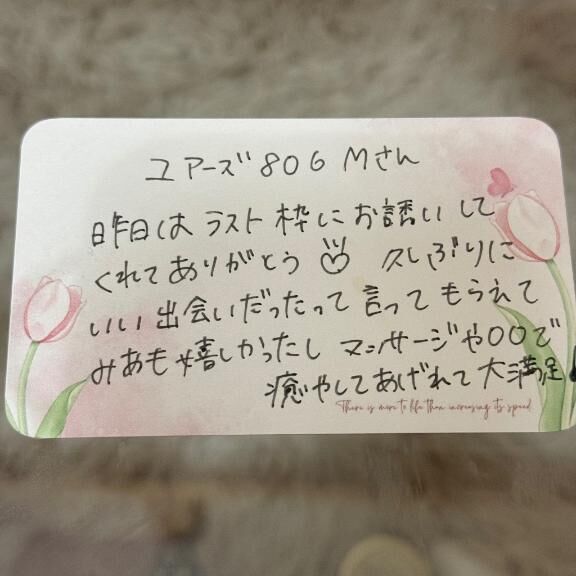 ユアーズ806 Mさん
昨日は ラスト枠に お誘いして
くれてありがとう 久しぶりに
いい出会いだったって言ってもらえて
みあも嬉しかったし マッサージや〇〇で
癒やしてあげれて大満足!
There is more to life than increasing its speed.